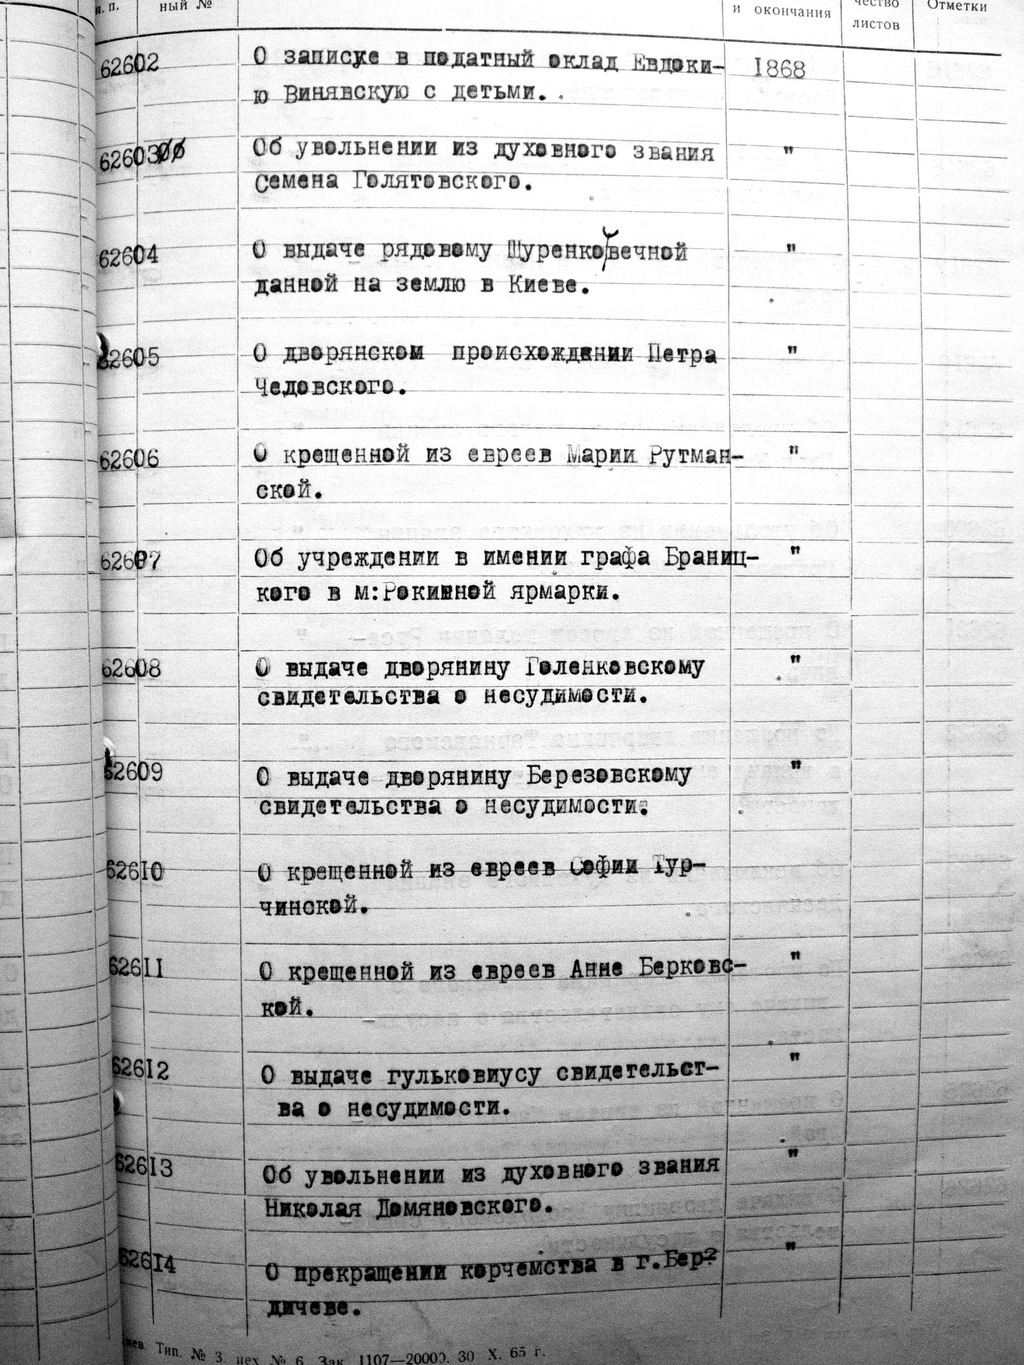 п. п.
ный №
и окончания
чество
листов
Отметки
62602 О записке в податный оклад Евдоки- 1868
ю Винявскую с детьми.
62603 Об увольнении из духовного звания "
Семена Голятовского.
62604 О выдаче рядовому Щуренко вечной "
данной на землю в Киеве.
62605 О дворянском происхождении Петра "
Чедовского.
62606 О крещенной из евреев Марии Рутман- "
ской.
62607 Об учреждении в имении графа Браниц- "
кого в м:Рокинной ярмарки.
62608 О выдаче дворянину Голенковскому "
свидетельства о несудимости.
62609 О выдаче дворянину Березовскому "
свидетельства о несудимости.
62610 О крещенной из евреев Софии Тур-
чинской.
62611 О крещенной из евреев Анне Берковс- "
кой.
62612 О выдаче гульковиусу свидетельст- "
ва о несудимости.
62613 Об увольнении из духовного звания "
Николая Домяновского.
62614 О прекращении корчемства в г.Бер- "
дичеве.
Тип. № 3 цех № 6 Зак. 1107—20000. 30 X. 65 г.